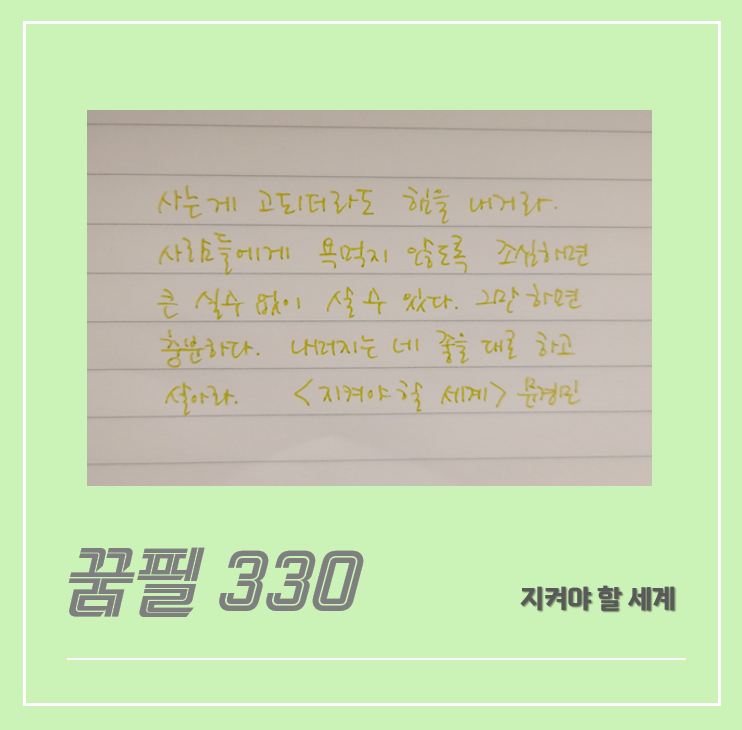 사는게 고되더라도 힘을 내거라.
사람들에게 욕먹지 않도록 조심하면
큰 실수 없이 살 수 있다. 그만 하면
충분하다. 나머지는 네 좋을 대로 하고
살아라. <지켜야 할 세계> 문경민
꿈필 330
지켜야 할 세계